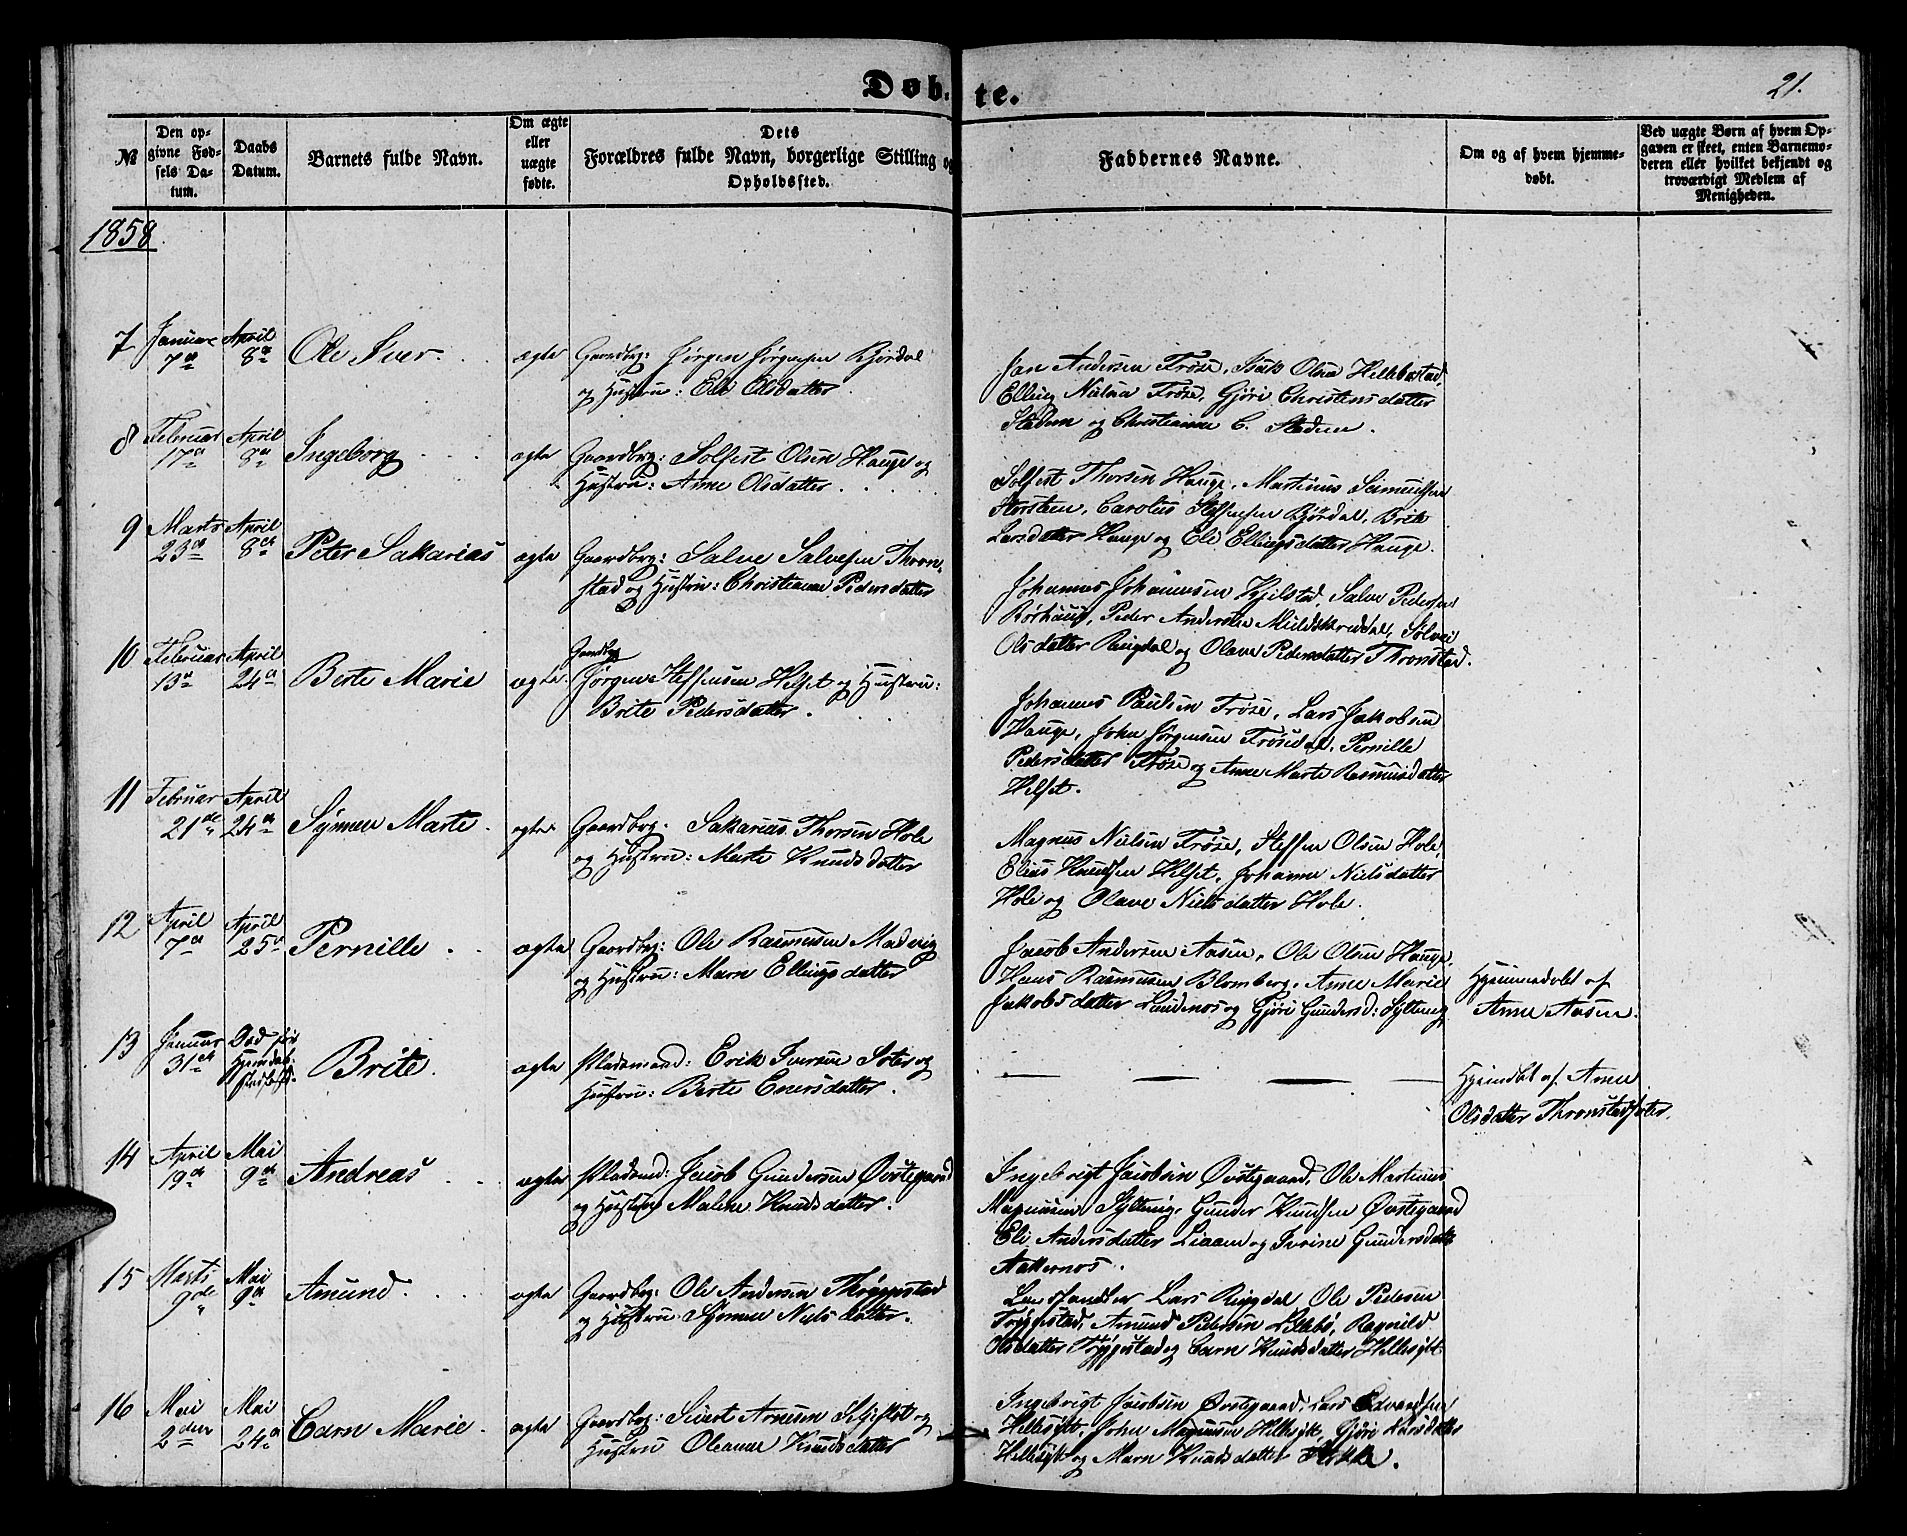 Døbte.
21.
№
Den opgivne Fødsels Datum.
Daabs Datum.
Barnets fulde Navn.
Om ægte eller uægte fødte.
Dets Forældres fulde Navn, borgerlige Stilling og Opholdssted.
Faddernes Navne.
Om og af hvem hjemmedøbt.
Ved uægte Børn af hvem Opgaven er skeet, enten Barnemoderen eller hvilket bekjendt og troværdigt Medlem af Menigheden.
1858.
7 Januar 7de April 8de Ole Iver. ægte Gaardbrg: Jørgen Jørgensen Bjørdal
og Hustru: Eli Olsdatter.
Jan Andersen Frøse, Isak Olsen Hellebostad,
Elling Nielsen Frøse, Gjøri Christensdatter
Stadem og Christianne C. Stadem.
8 Februar 17de April 8de Ingeborg ægte Gaardbrg: Solfest Olsen Hauge og
Hustru: Anne Olsdatter.
Solfest Thorsen Hauge, Martinus Seimundsen
Horstem, Carolus Steffensen Bjørdal, Brite
Larsdatter Hauge og Eli Ellingsdatter Hauge.
9 Marts 23de April 8de Peter Sakarias ægte Gaardbrg: Salve Salvesen Thron-
stad og Hustru: Christianne Pedersdatter
Johannes Johannesen Kjelstad, Salve Pedersen
Rørhuus, Peder Andersen Muldskreddal, Sølvei
Olsdatter Ringdal og Olave Pedersdatter Thronstad.
10 Februar 13de April 24de Berte Marie ægte Gaardbrg
Jørgen Steffensen Helset og Hustru:
Brite Pedersdatter.
Johannes Paulsen Frøse, Lars Jakobsen
Hauge, John Jørgensen Frøsedal, Pernille
Pedersdatter Frøse og Anne Marte Rasmusdatter
Helset.
11 Februar 21de April 24de Synneve Marte. ægte Gaardbrg. Sakarias Thorsen Hole
og Hustru: Marte Knudsdatter
Magnus Nielsen Frøse, Steffen Olsen Hole,
Elias Knudsen Helset, Johanne Nielsdatter
Hole og Olave Nielsdatter Hole.
12 April 7de April 25de Pernille ægte Gaardbrg: Ole Rasmusen Madvig
og Hustru: Maren Ellingsdatter
Jacob Andersen Aasen, Ole Olsen Hauge,
Hans Rasmusen Blomberg, Anne Marie
Jakobsdatter Lundenes og Gjøri Gundersd: Sylting
Hjemmedøbt af
Anne Aasen.
13 Januar 31de Død før
Brite. ægte Pladsmand: Erik Iversen Sæter og
Hustru: Berte Enersdatter.
Hjemdøbt af Anne
Olsdatter Thronstadsæter.
14 April 19de Mai 9de Andreas ægte Pladsmd: Jacob Gundersen Øvstegaard
og Hustru Malene Knudsdatter.
Ingebrigt Jacobsen Øvstegaard, Ole Martinus
Magnusen Sylting, Gunder Knudsen Øvstegaard
Eli Andersdatter Liaaen og Ivrine Gundersdatter
Aakernes.
15 Marts 9de Mai 9de Amund. ægte Gaardbrg: Ole Andersen Thryggestad
og Hustru Synneve Nielsdatter.
Lensmand Lars Ringdal, Ole Pedersen
Tryggestad, Amund Pedersen Lillebø, Ragnild
Olsdatter Tryggestad og Caren Knudsdatter Hellesylt.
16 Mai 2den Mai 24de Caren Marie. ægte Gaardbrg: Sivert Arnesen Skjeftet og
Hustru Oleanne Knudsdatter
Ingebrigt Jacobsen Øvstegaard, Lars Edvardsen
Hellesylt, John Magnusen Hellesylt, Gjøri Larsdatter
Hellesylt og Maren Knudsdatter